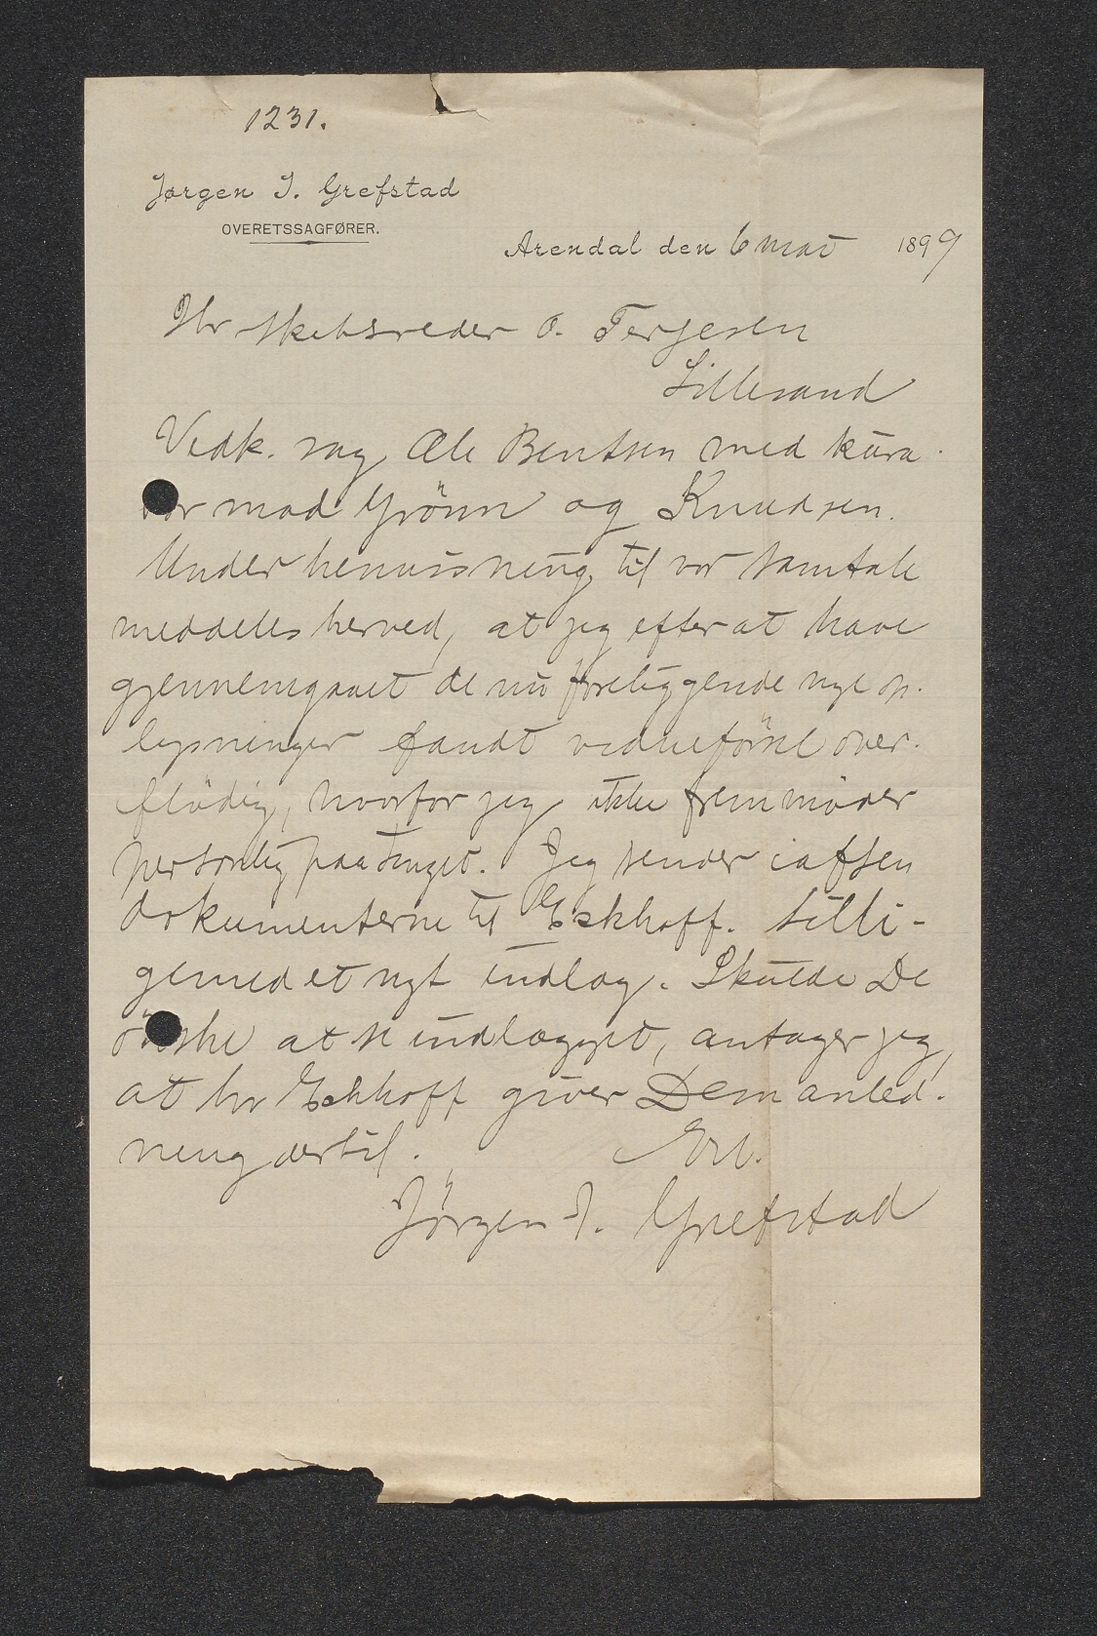 1231.
Jørgen I. Grefstad
OVERETSSAGFØRER.
Arendal den 6 mai 1899
Hr skibsreder O. Terjesen
Lillesand
Vedk. sag Ole Bentsen med kura-
tor mod Grönn og Knudsen.
Under henvisning til vor samtale
meddeles herved, at jeg efter at have
gjennemgaaet de nu foreliggende nye op-
lysninger fandt vidneförsel over-
flödig, hvorfor jeg ikke fremmöder
personlig paa tinget. Jeg sender iaften
dokumenterne til Eskhoff. tilli-
gemed et nyt indlæg. Skulde De
önske at se indlægget, antager jeg,
at hr Eskhoff giver Dem anled-
ning dertil. Erb.
Jörgen I. Grefstad